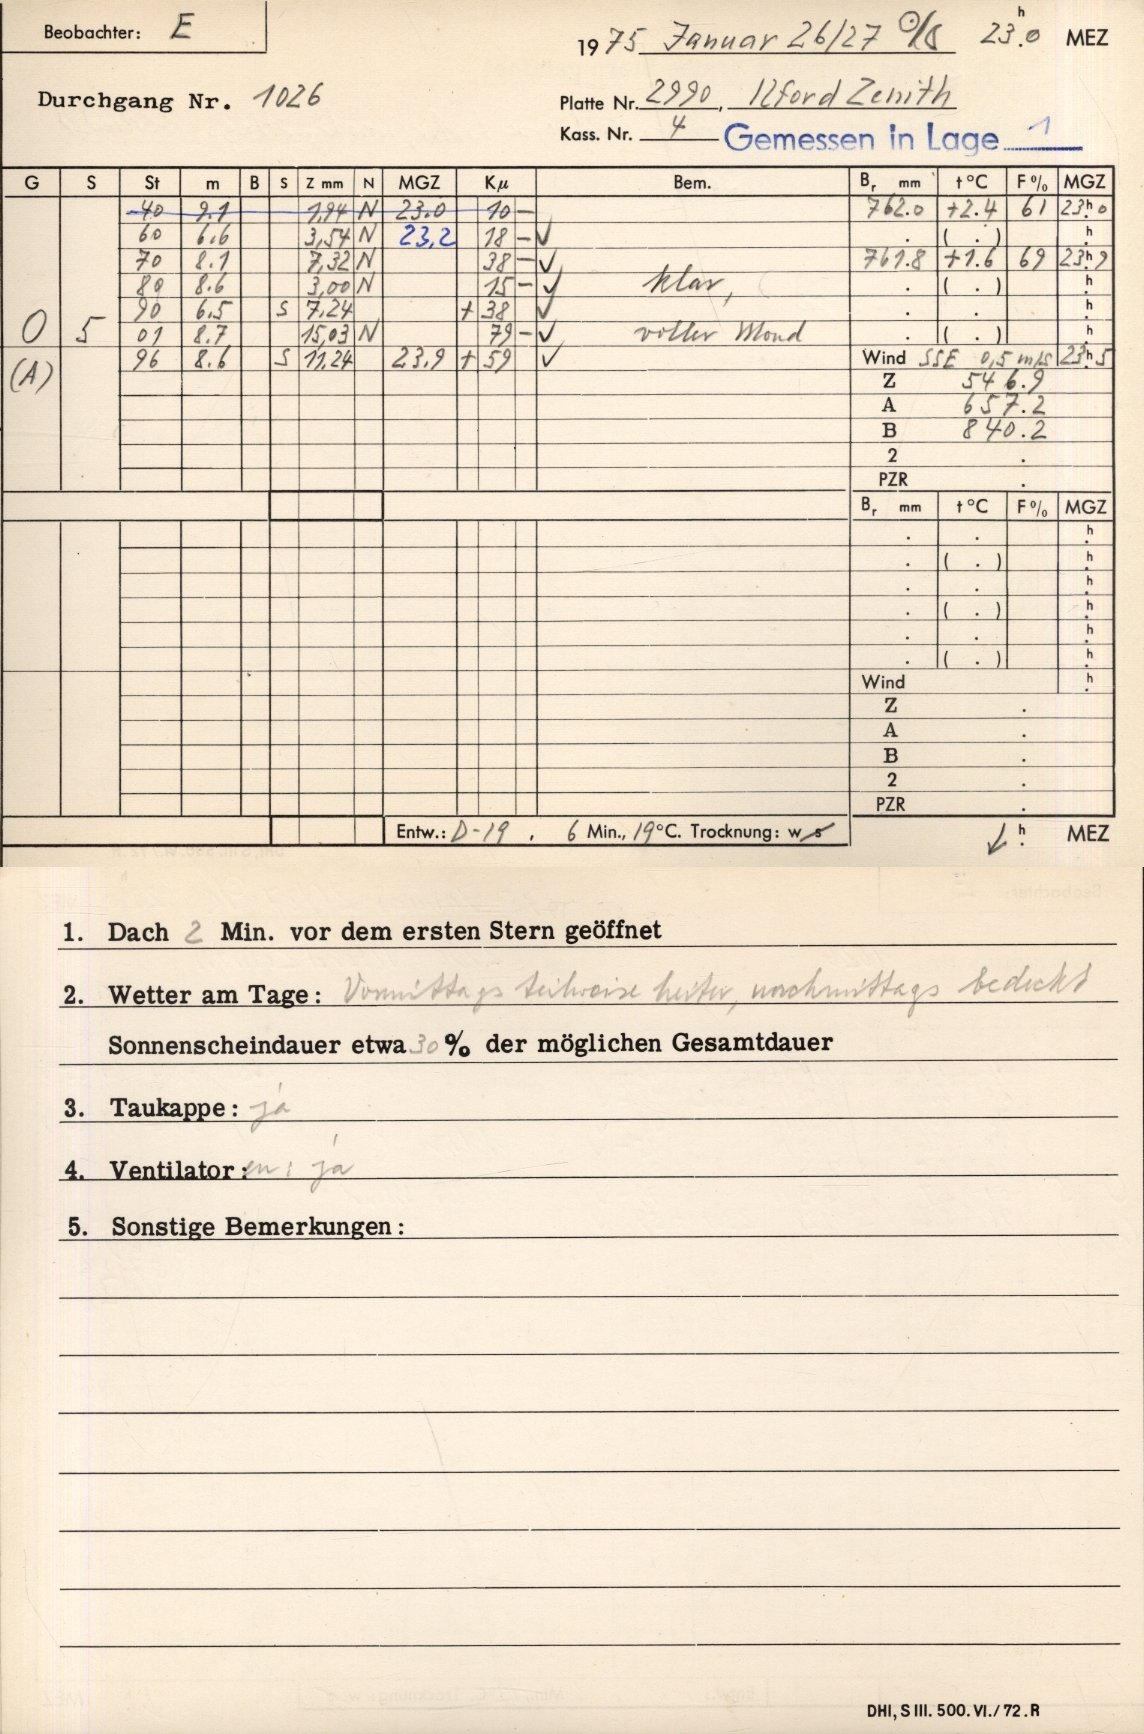 Beobachter: E
1975 Januar 26/27 ☉/☾ 23.h0 MEZ
Durchgang Nr. 1026
Platte Nr. 2990, Ilford Zenith
Kass. Nr. 4 Gemessen in Lage 1
G S St m B S Z mm N MGZ Kµ Bem. Br mm t °C F % MGZ
40 9.1 1,94 N 23.0 10 – 762.0 +2.4 61 23h0
60 6.6 3,54 N 23,2 18 – ✓ . ( . ) h
70 8.1 7,32 N 38 – ✓ 761.8 +1.6 69 23h9
80 8.6 3,00 N 15 – ✓ klar, . ( . ) h
90 6.5 S 7,24 + 38 ✓ . . h
O 5 01 8.7 15,03 N 79 – ✓ voller Mond . ( . ) h
(A) 96 8.6 S 11,24 23.9 + 59 ✓ Wind SSE 0,5 m/s 23h5
Z 546.9
A 657.2
B 840.2
2 .
PZR .
Br mm t °C F % MGZ
. . h
. ( . ) h
. . h
. ( . ) h
. . h
. ( . ) h
Wind h
Z .
A .
B .
2 .
PZR .
Entw.: D-19 , 6 Min., 19 °C. Trocknung: w s h MEZ
1. Dach 2 Min. vor dem ersten Stern geöffnet
2. Wetter am Tage: Vormittags teilweise heiter, nachmittags bedeckt
Sonnenscheindauer etwa 30 % der möglichen Gesamtdauer
3. Taukappe: ja
4. Ventilator: ja
5. Sonstige Bemerkungen:
DHI, S III. 500. VI./72. R